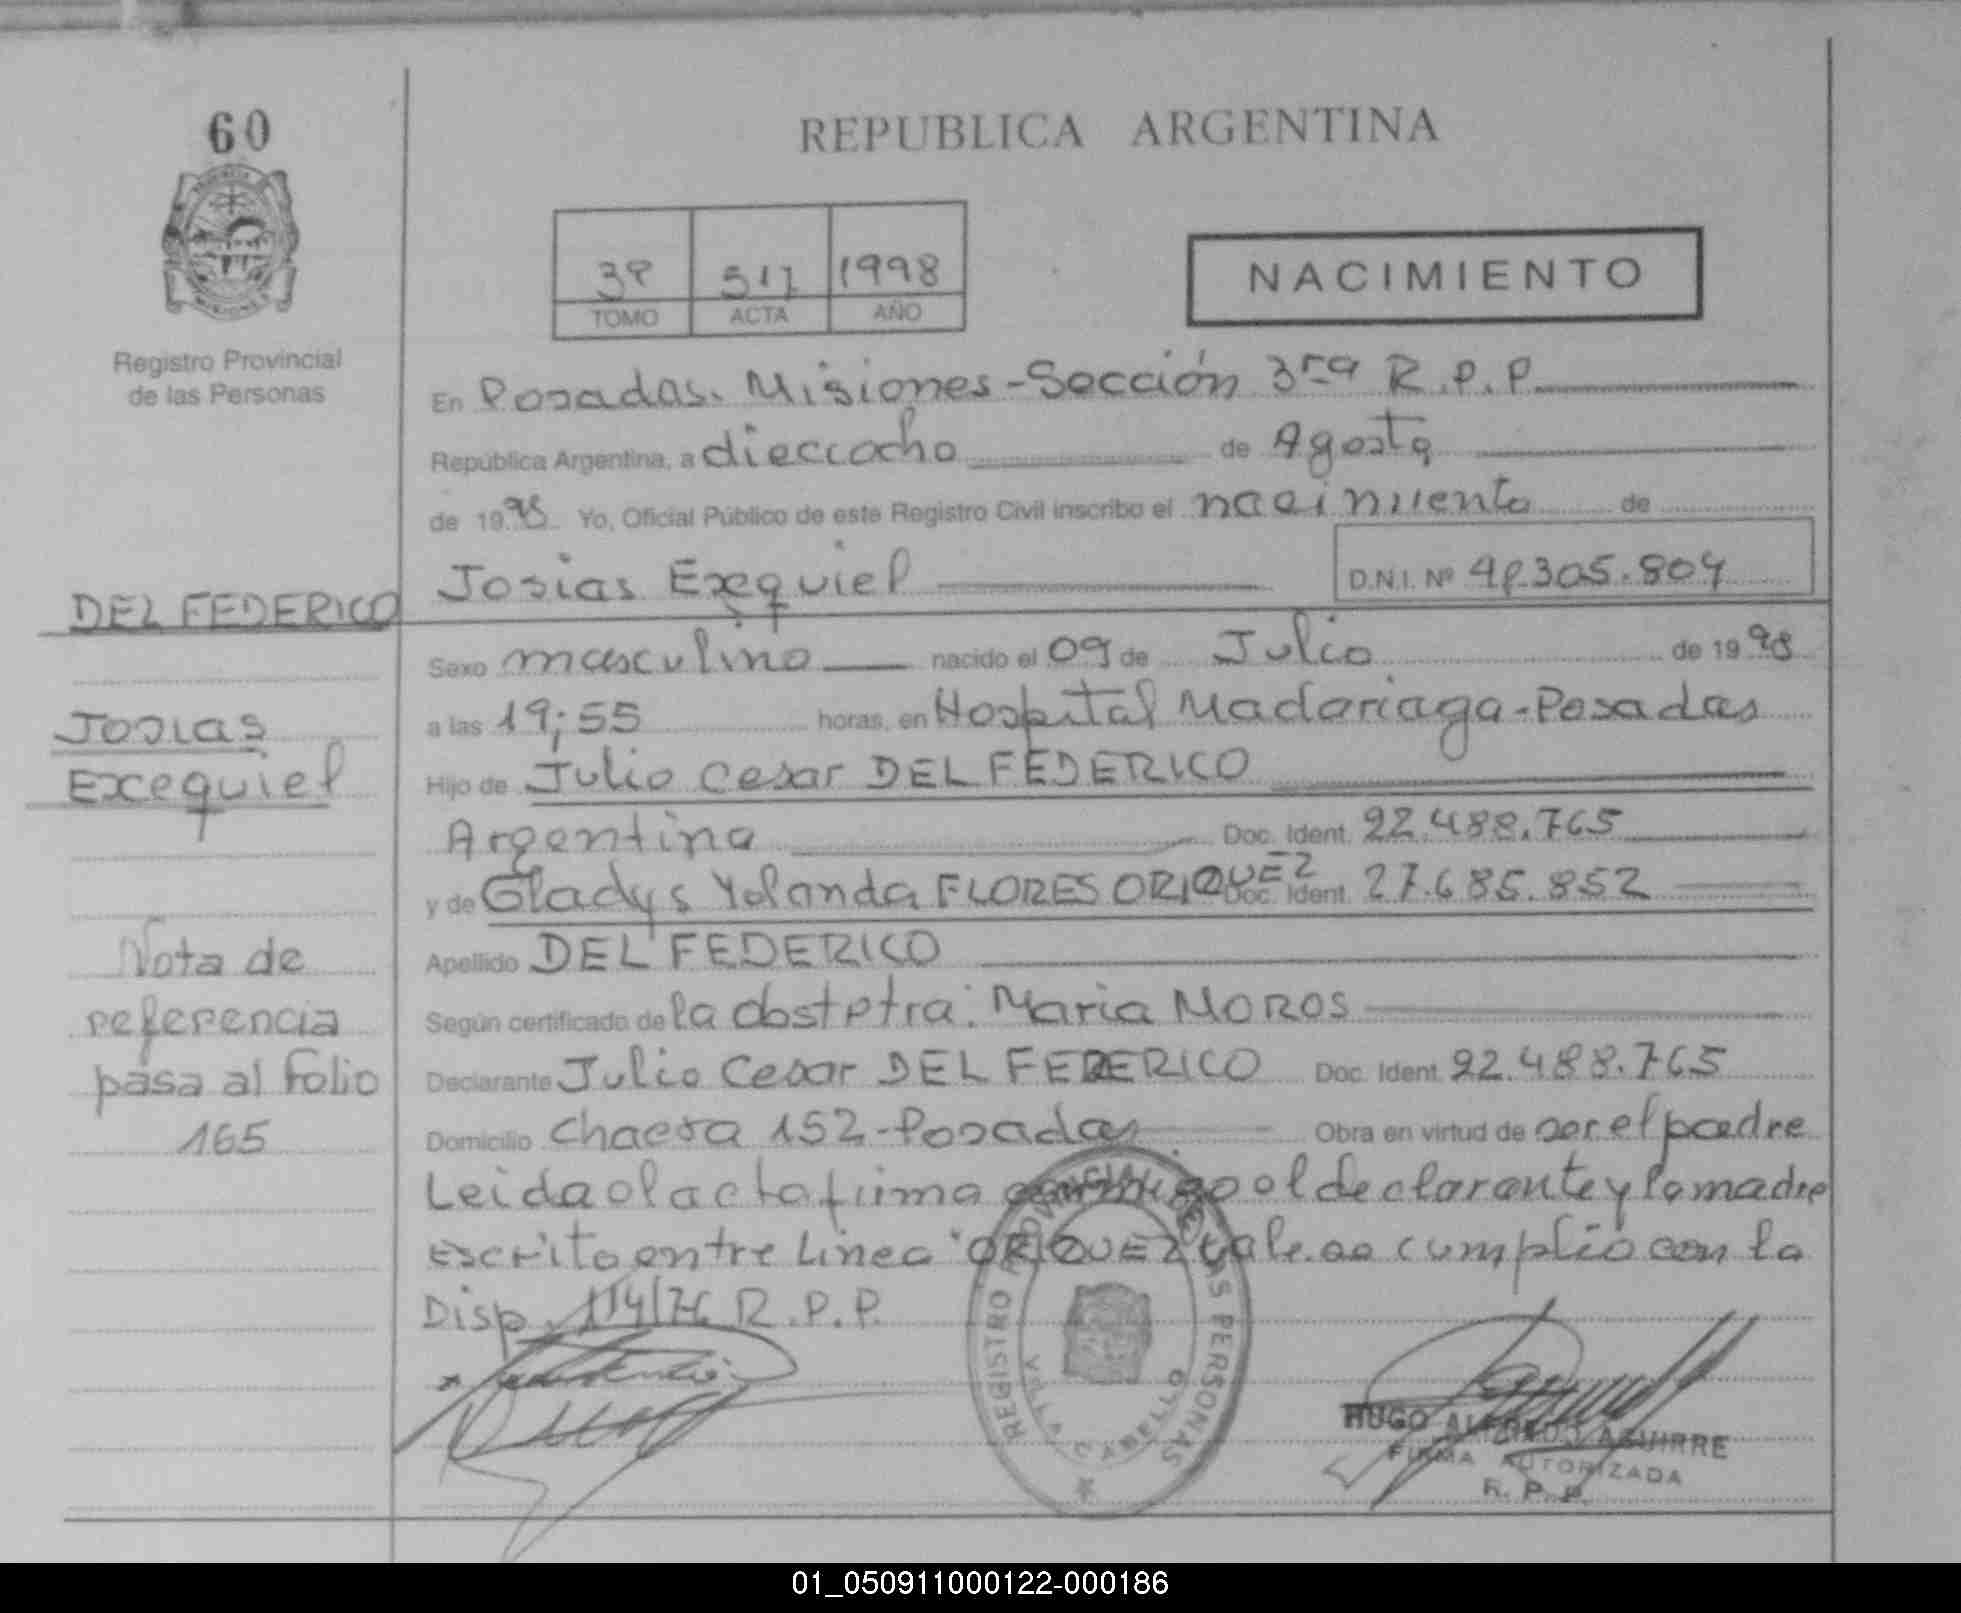 60
REPUBLICA ARGENTINA
1998
TOMO ACTA AÑO
NACIMIENTO
Registro Provincial
de las Personas
En Posadas. Misiones - Sección 3ra R.P.P.
República Argentina, a dieciocho de Agosto
de 1998 Yo, Oficial Público de este Registro Civil inscribo el nacimiento de
Josias Exequiel D.N.I. Nº
DEL FEDERICO
Sexo masculino nacido el 09 de Julio de 1998
Josias
a las 19;55 horas, en Hospital Madariaga - Posadas
Exequiel
Hijo de Julio Cesar DEL FEDERICO
Argentina Doc. Ident. 22.488.765
y de Gladys Yolanda FLORES ORIQUEZ Doc. Ident. 27.685.852
Nota de
Apellido DEL FEDERICO
referencia
Según certificado de la obstetra: Maria MOROS
pasa al Folio
Declarante Julio Cesar DEL FEDERICO Doc. Ident. 22.488.765
165
Domicilio Chacra 152 - Posadas Obra en virtud de ser el padre
Leida el acta firma conmigo el declarante y la madre
Escrito entre Linea "ORIQUEZ vale. se cumplió con la
Disp. 114/76 R.P.P.
REGISTRO PROVINCIAL DE LAS PERSONAS
VILLA CABELLO
HUGO ALFREDO AGUIRRE
FIRMA AUTORIZADA
R. P. P.
01_050911000122-000186